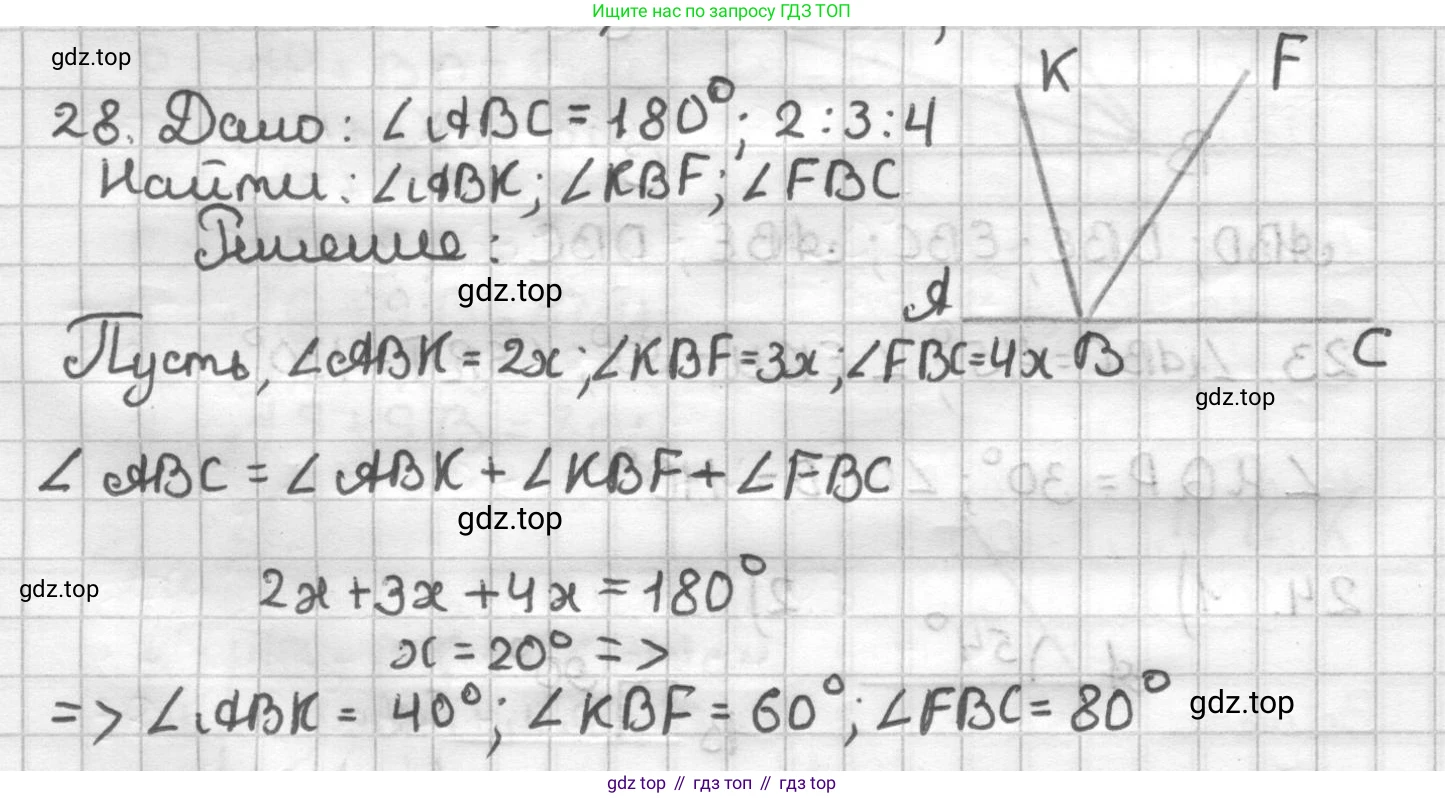 Ищите нас по запросу ГДЗ ТОП
gdz.top
K F
28. Дано: ∠ABC = 180°; 2:3:4
Найти: ∠ABK; ∠KBF; ∠FBC
Решение:
gdz.top
A
Пусть, ∠ABK = 2x; ∠KBF = 3x; ∠FBC = 4x B C
gdz.top
∠ABC = ∠ABK + ∠KBF + ∠FBC
gdz.top
gdz.top
2x + 3x + 4x = 180°
x = 20° =>
=> ∠ABK = 40°; ∠KBF = 60°; ∠FBC = 80° gdz.top
gdz top // гдз топ // gdz top